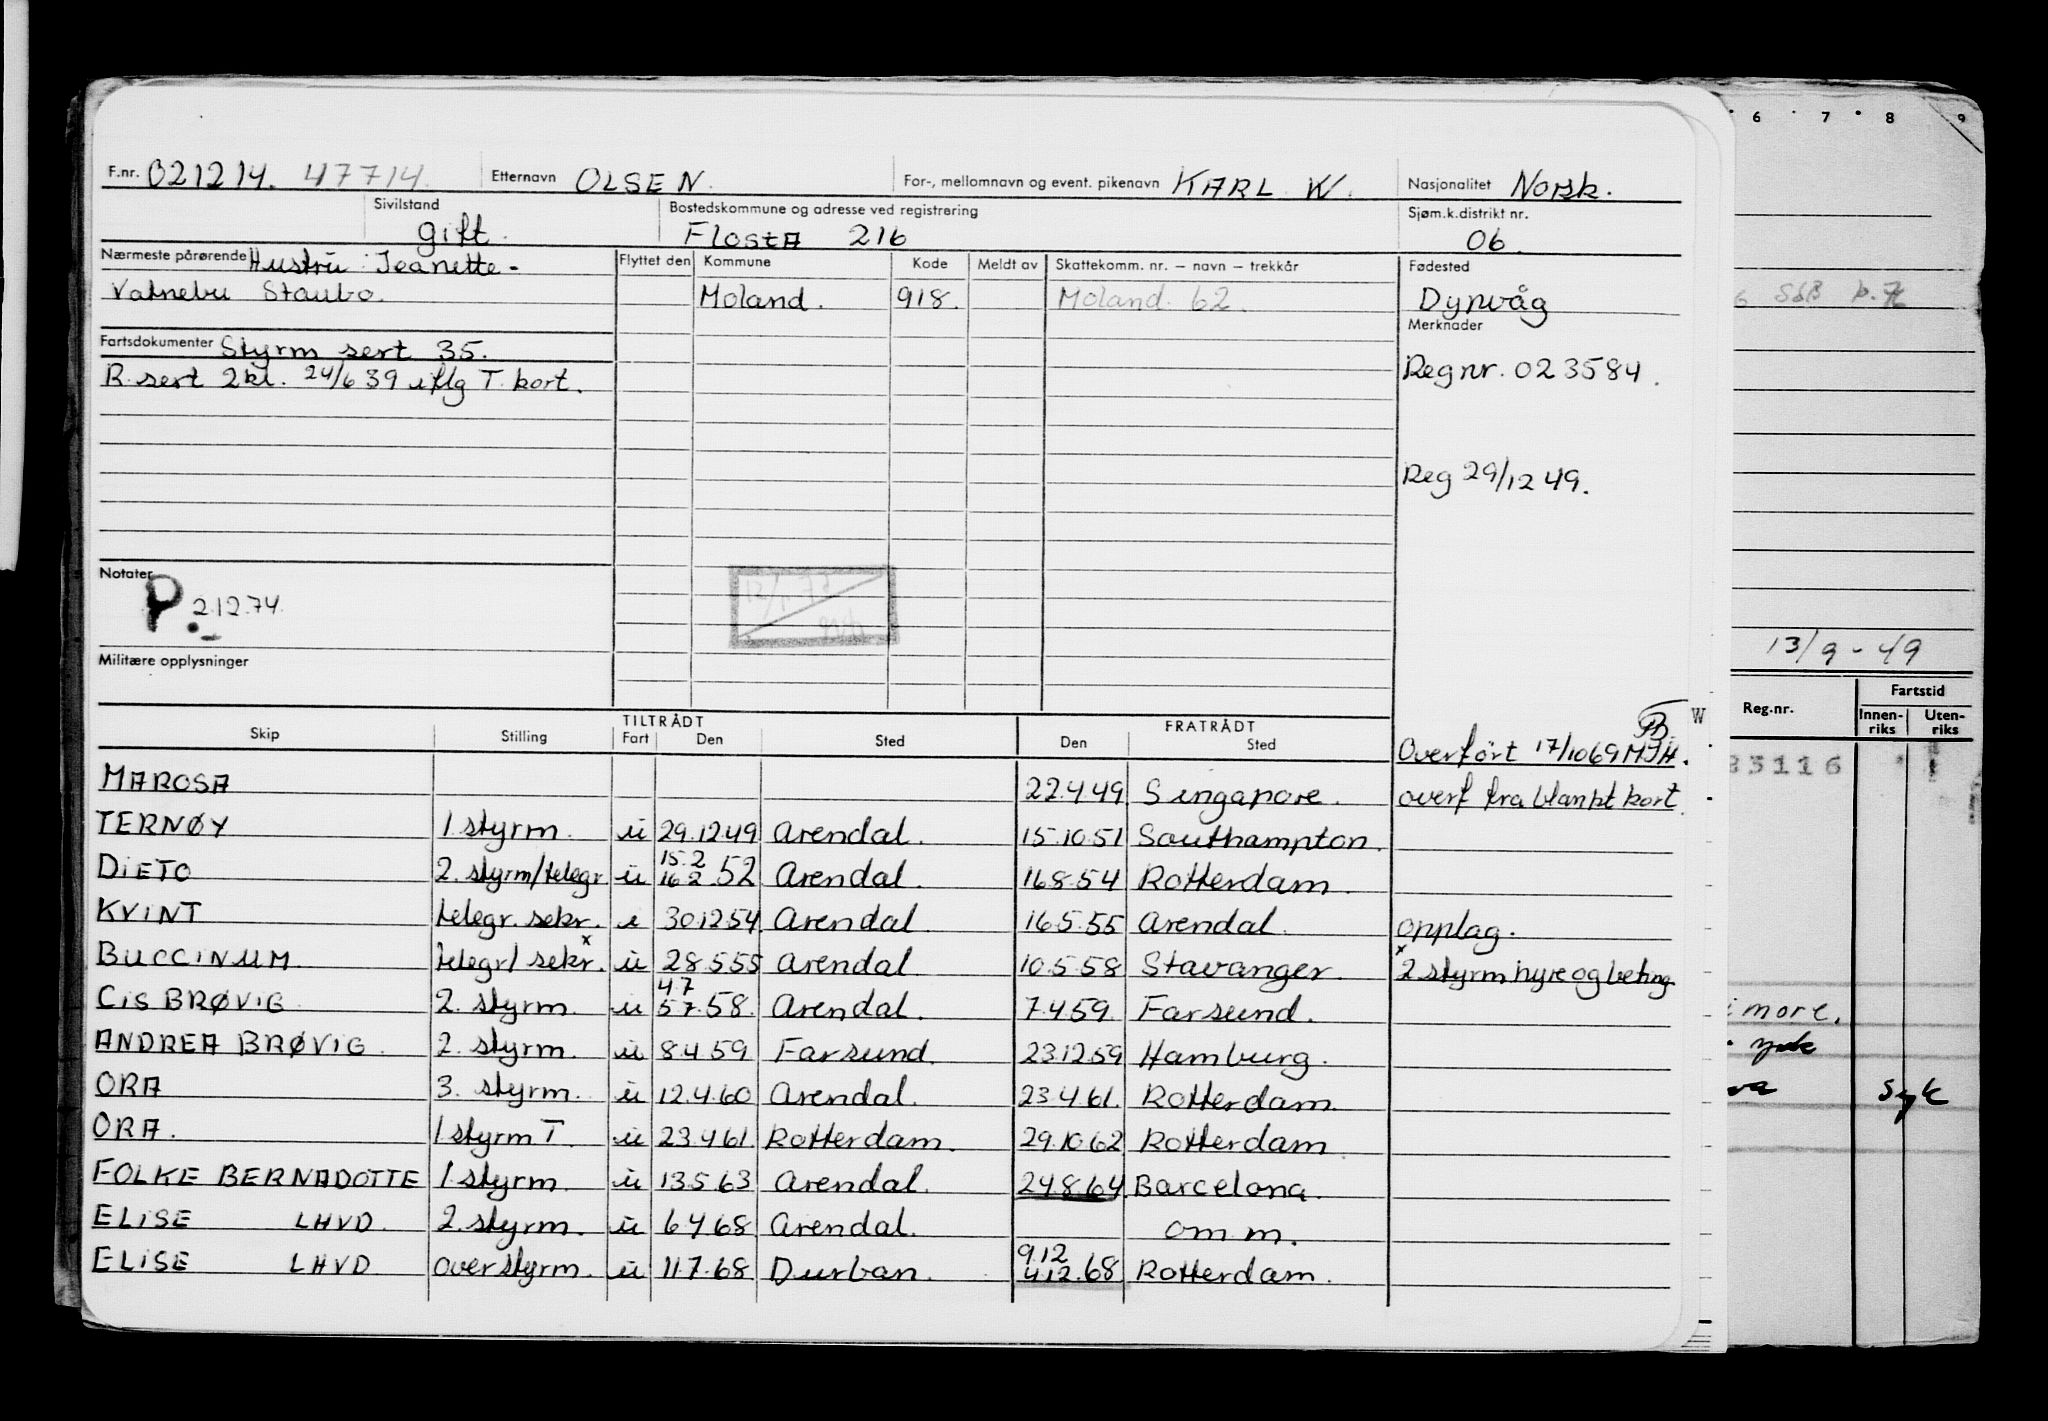 F.nr. 021214. 47714. Etternavn OLSEN. For-, mellomnavn og event. pikenavn KARL W. Nasjonalitet Norsk.
Sivilstand gift. Bostedskommune og adresse ved registrering Flosta 216 Sjøm.k.distrikt nr. 06.
Nærmeste pårørende Hustru: Jeanette - Flyttet den Kommune Kode Meldt av Skattekomm. nr. – navn – trekkår Fødested
Vatnebu Staubo. Moland. 918. Moland. 62. Dypvåg
Merknader
Fartsdokumenter Styrm sert 35.
R. sert 2kl. 24/6 39 iflg T. kort. Reg nr. 023584.
Reg 29/12 49.
Notater
P. 2.12.74.
Militære opplysninger
TILTRÅDT FRATRÅDT
Skip Stilling Fart Den Sted Den Sted
Overført 17/10 69 MJH.
MAROSA 22.4.49 Singapore. overf fra blankt kort
TERNØY 1 styrm. u 29.12.49 Arendal. 15.10.51 Southampton.
15.2
DIETO 2. styrm/telegr u 16.2.52 Arendal. 16.8.54 Rotterdam.
KVINT telegr. sekr. i 30.12.54 Arendal 16.5.55 Arendal. opplag.
BUCCINUM telegr/ sekr. x u 28.5.55 Arendal 10.5.58 Stavanger. x 2 styrm hyre og beting
4.7
CIS BRØVIG 2. styrm. u 5.7.58. Arendal. 7.4.59. Farsund.
ANDREA BRØVIG. 2. styrm. u 8.4.59 Farsund. 23.12.59 Hamburg.
ORA 3. styrm. u 12.4.60 Arendal. 23.4.61. Rotterdam.
ORA. 1 styrm T. u 23.4.61. Rotterdam. 29.10.62 Rotterdam
FOLKE BERNADOTTE 1. styrm. u 13.5.63 Arendal. 24.8.64 Barcelona.
ELISE LHVD. 2. styrm. u 6.4.68 Arendal. om m.
9.12
ELISE LHVD overstyrm. u 11.7.68 Durban. 4.12.68 Rotterdam.
6 7 8 9
13/9 - 49
Reg.nr. Fartstid
Innen-riks Uten-riks
W
83116
more.
syk